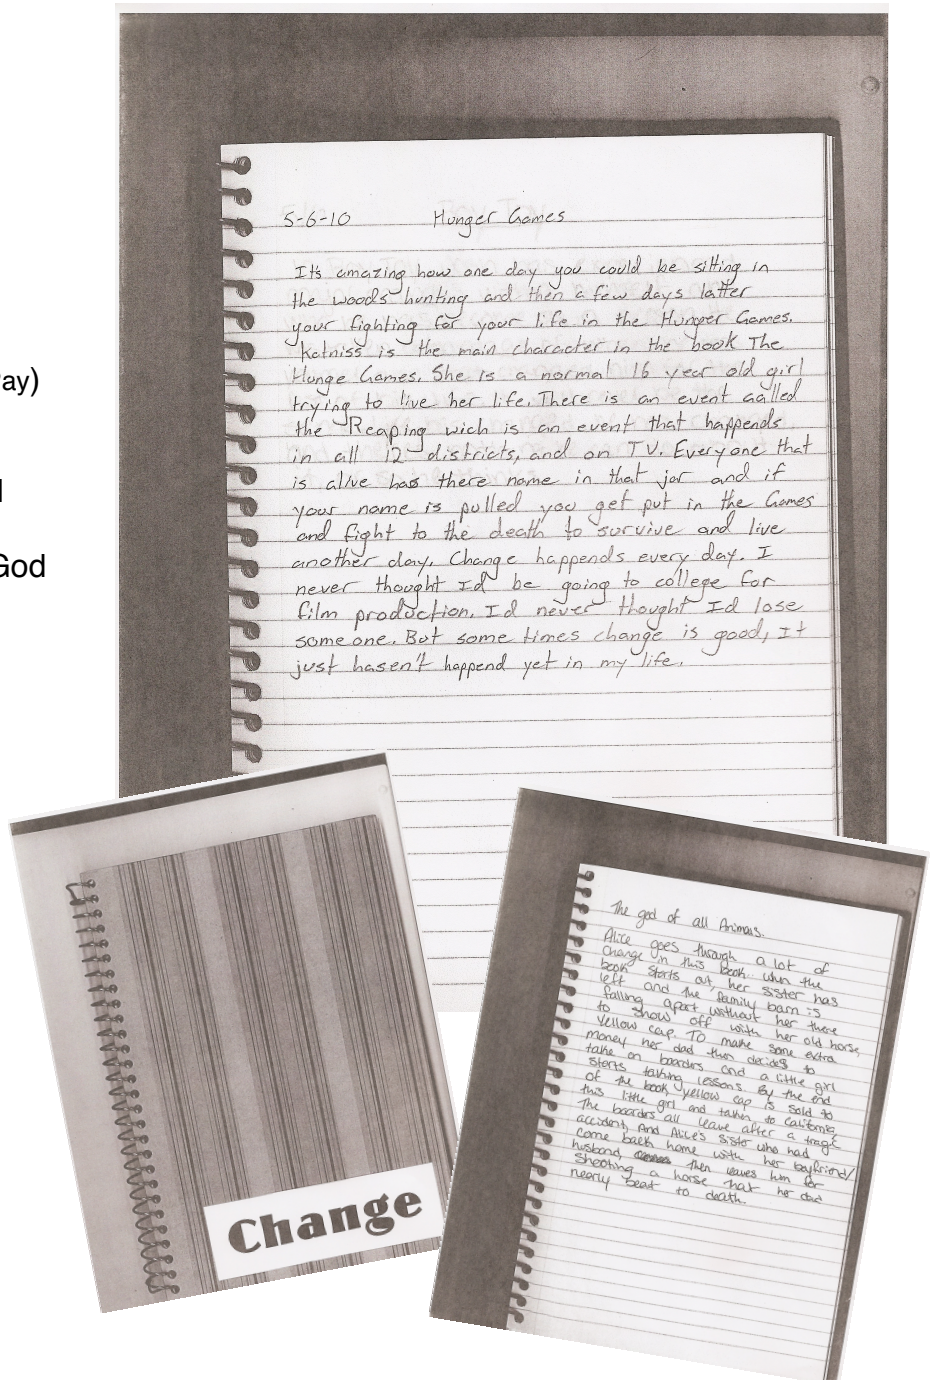 ay)
God
5-6-10 Hunger Games
It's amazing how one day you could be sitting in
the woods hunting and then a few days latter
your fighting for your life in the Hunger Games.
Katniss is the main character in the book The
Hunge Games. She is a normal 16 year old girl
trying to live her life. There is an event called
the Reaping wich is an event that happends
in all 12 districts, and on TV. Everyone that
is alive has there name in that jar and if
your name is pulled you get put in the Games
and fight to the death to survive and live
another day. Change happends every day. I
never thought I'd be going to college for
film production. I'd never thought I'd lose
someone. But some times change is good, It
just hasen't happend yet in my life.
Change
The god of all Animals.
Alice goes through a lot of
change in this book. when the
book starts out, her sister has
left and the family barn is
falling apart without her there
to show off with her old horse,
Yellow cap. To make some extra
money her dad then decides to
take on boarders and a little girl
starts taking lessons. By the end
of the book yellow cap is sold to
this little girl and taken to california,
The boarders all leave after a tragic
accident, And Alice's sister who had
come back home with her boyfriend/
husband, then leaves him for
shooting a horse that her dad
nearly beat to death.